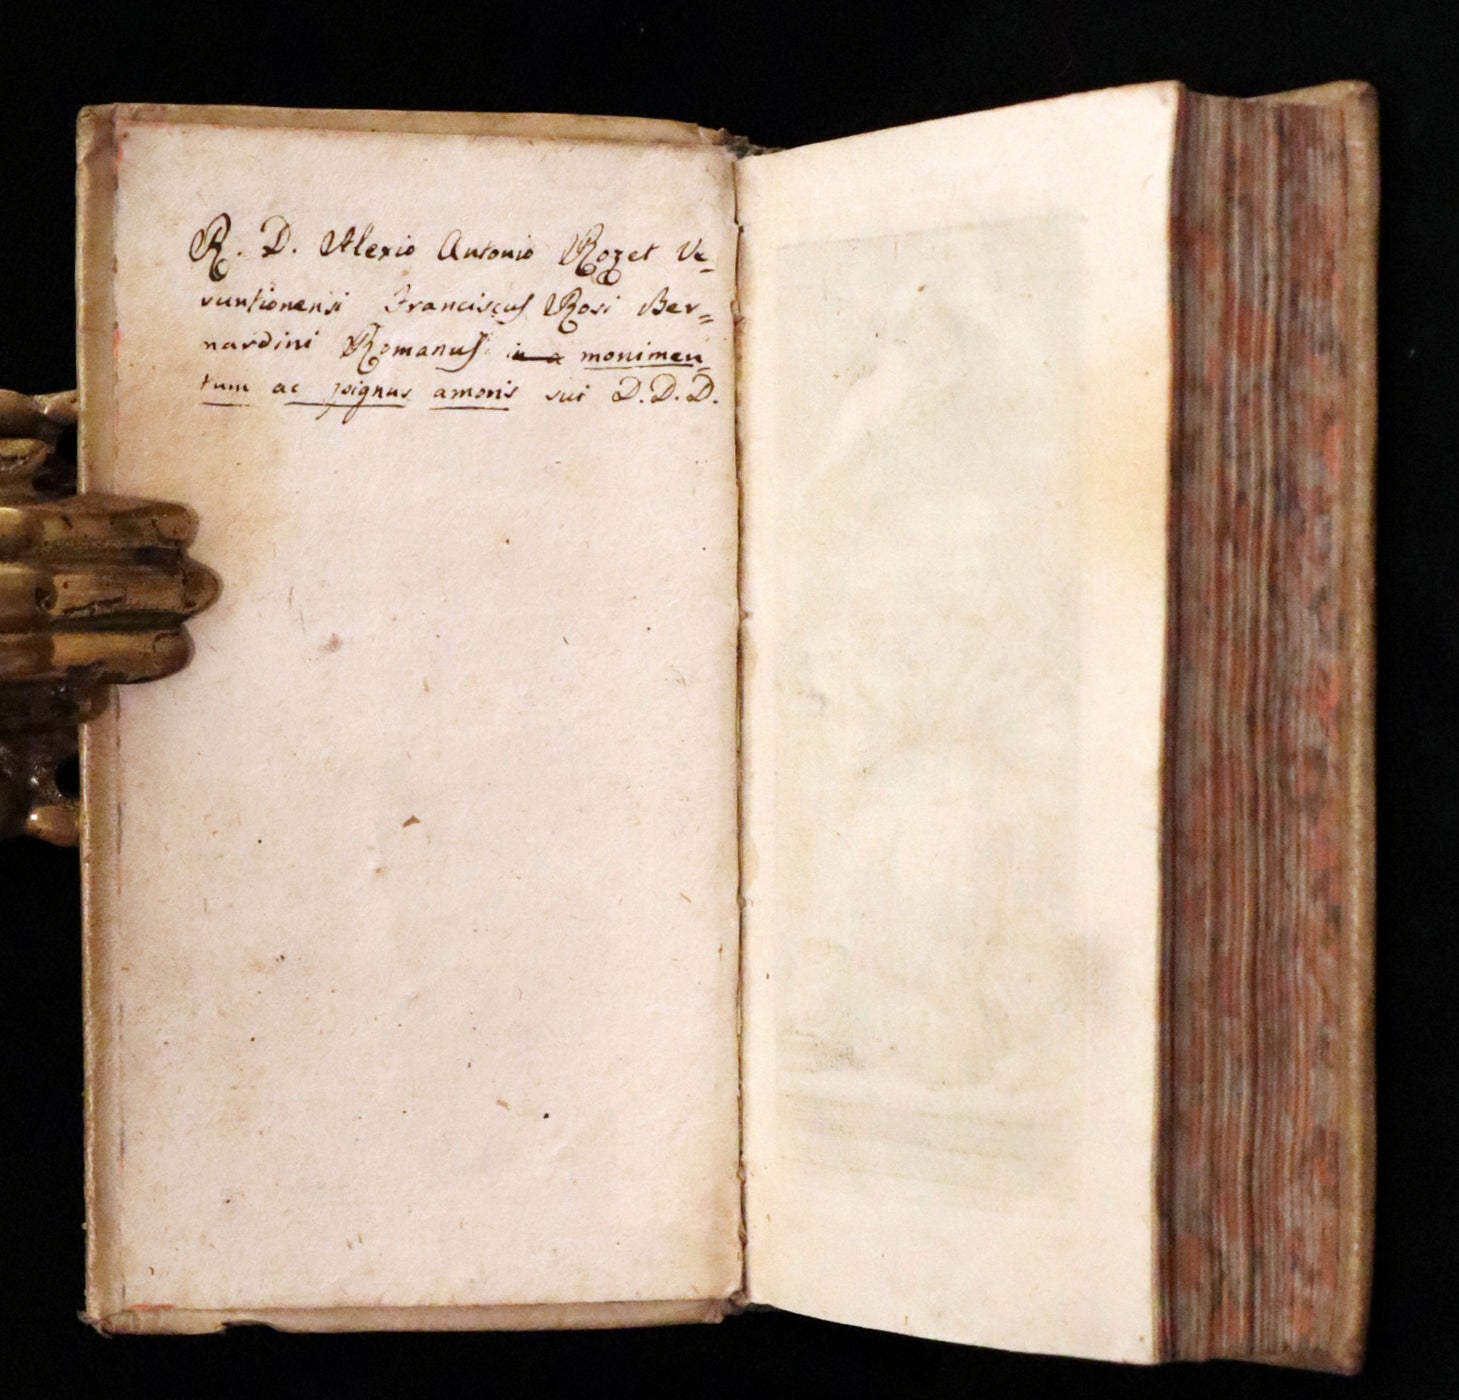 R. D. Alexio Antonio Rozet Ve-
runtionensi Franciscus Rosi Ber=
nardini Romanus in a monimen-
tum ac pignus amoris sui D.D.D.